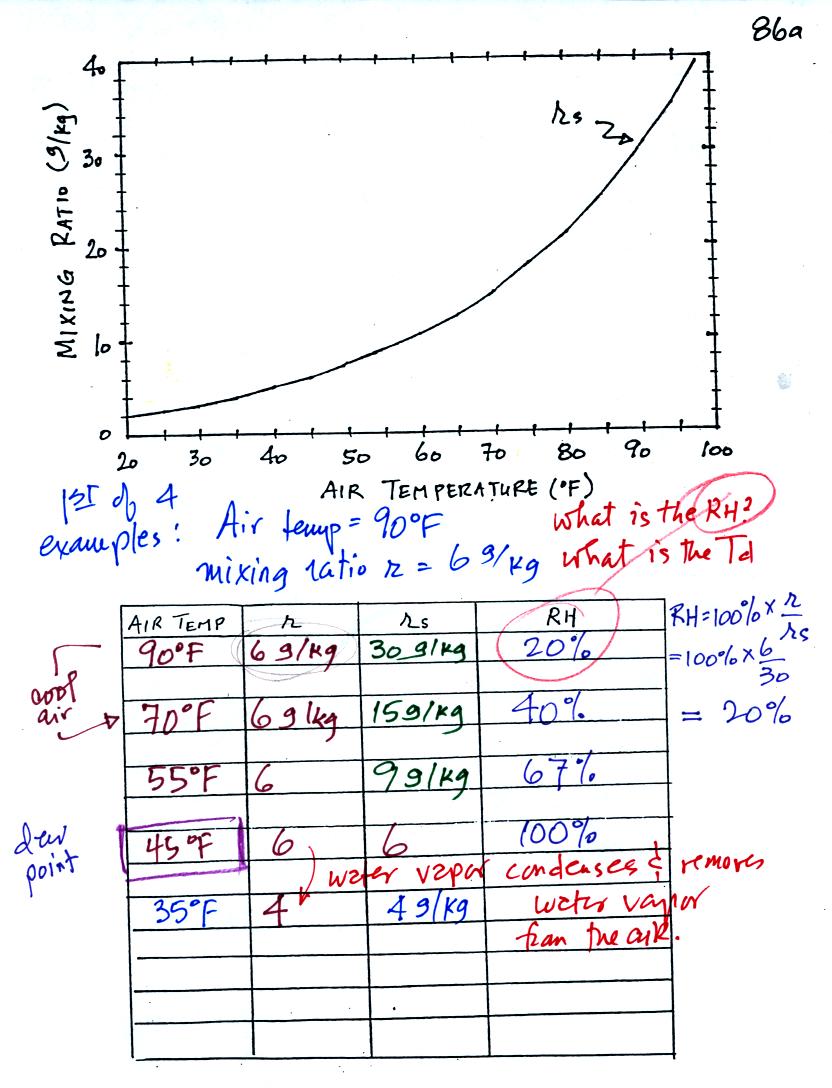 86a
40
30
20
10
0
MIXING RATIO (g/kg)
rs
20 30 40 50 60 70 80 90 100
AIR TEMPERATURE (°F)
1st of 4
examples: Air temp = 90°F
mixing ratio r = 6 g/kg
what is the RH?
what is the Td
AIR TEMP r rs RH
90°F 6 g/kg 30 g/kg 20%
70°F 6 g/kg 15 g/kg 40%
55°F 6 9 g/kg 67%
45°F 6 6 100%
35°F 4 4 g/kg
cool
air
dew
point
water vapor condenses & removes
water vapor
from the air.
RH = 100% × r/rs
= 100% × 6/30
= 20%